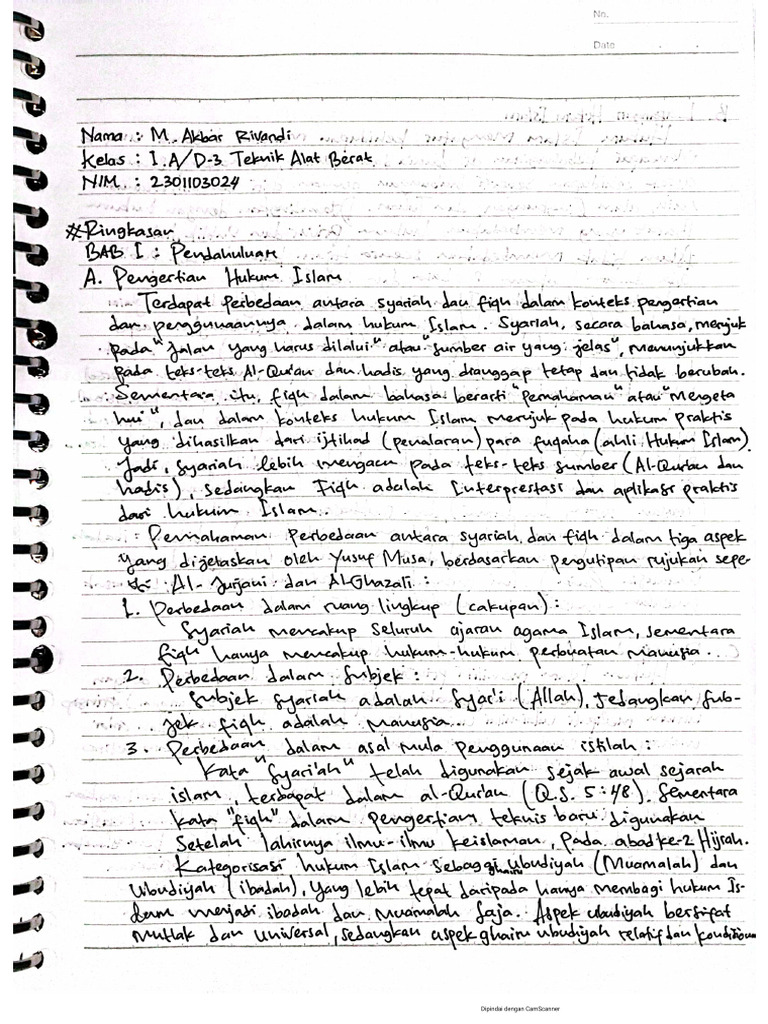 No.
Date
Nama : M. Akbar Rivandi
Kelas : I.A/D-3 Teknik Alat Berat
NIM : 2301103024
#Ringkasan
BAB I : Pendahuluan
A. Pengertian Hukum Islam
Terdapat perbedaan antara syariah dan fiqh dalam konteks pengertian
dan penggunaannya dalam hukum Islam. Syariah, secara bahasa, merujuk
pada "Jalan yang harus dilalui" atau "sumber air yang jelas", menunjukkan
pada teks-teks Al-Qur'an dan hadis yang dianggap tetap dan tidak berubah.
Sementara itu, fiqh dalam bahasa berarti "pemahaman" atau "Mengeta
hui", dan dalam konteks hukum Islam merujuk pada hukum praktis
yang dihasilkan dari ijtihad (penalaran) para fuqaha (ahli Hukum Islam).
Jadi, syariah lebih mengacu pada teks-teks sumber (Al-Qur'an dan
hadis), sedangkan Fiqh adalah Interprestasi dan aplikasi praktis
dari hukum Islam.
Pemahaman perbedaan antara syariah dan fiqh dalam tiga aspek
yang dijelaskan oleh Yusuf Musa, berdasarkan pengutipan rujukan sepe-
ti Al-Jurjani dan Al-Ghazali :
1. Perbedaan dalam ruang lingkup (cakupan) :
Syariah mencakup seluruh ajaran agama Islam, sementara
fiqh hanya mencakup hukum-hukum perbuatan manusia.
2. Perbedaan dalam Subjek :
Subjek syariah adalah Syar'i (Allah), sedangkan Sub-
jek fiqh adalah manusia.
3. Perbedaan dalam asal mula penggunaan istilah :
Kata "Syari'ah" telah digunakan sejak awal sejarah
islam, terdapat dalam al-Qur'an (Q.S. 5:48). Sementara
kata "fiqh" dalam pengertian teknis baru digunakan
Setelah lahirnya ilmu-ilmu keislaman, pada abad ke-2 Hijrah.
Kategorisasi hukum Islam sebagai ghairu ubudiyah (Muamalah) dan
Ubudiyah (ibadah), yang lebih tepat daripada hanya membagi hukum Is-
lam menjadi ibadah dan muamalah saja. Aspek ubudiyah bersifat
mutlak dan universal, sedangkan aspek ghairu ubudiyah relatif dan kondisional
Dipindai dengan CamScanner